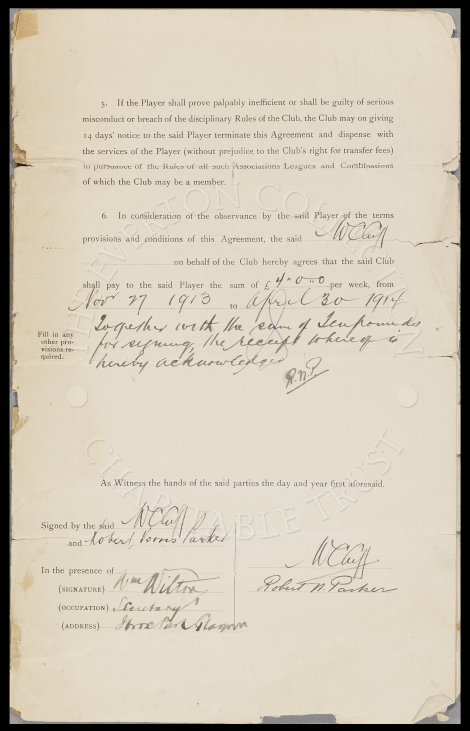 5. If the Player shall prove palpably inefficient or shall be guilty of serious
misconduct or breach of the disciplinary Rules of the Club, the Club may on giving
14 days' notice to the said Player terminate this Agreement and dispense with
the services of the Player (without prejudice to the Club's right for transfer fees)
in pursuance of the Rules of all such Associations Leagues and Combinations
of which the Club may be a member.
6. In consideration of the observance by the said Player of the terms
provisions and conditions of this Agreement, the said W Cuff
on behalf of the Club hereby agrees that the said Club
shall pay to the said Player the sum of £ 4-0-0 per week, from
Nov 27 1913 to April 30 1914
Fill in any
other pro-
visions re-
quired.
Together with the sum of Ten pounds
for signing, the receipt whereof is
hereby acknowledged
R.N.P.
As Witness the hands of the said parties the day and year first aforesaid.
Signed by the said W Cuff
and Robert Norris Parker
In the presence of
(SIGNATURE) Wm Wilton
(OCCUPATION) Secretary
(ADDRESS) Ibrox Park Glasgow
W Cuff
Robert N. Parker
THE EVERTON COLLECTION
CHARITABLE TRUST